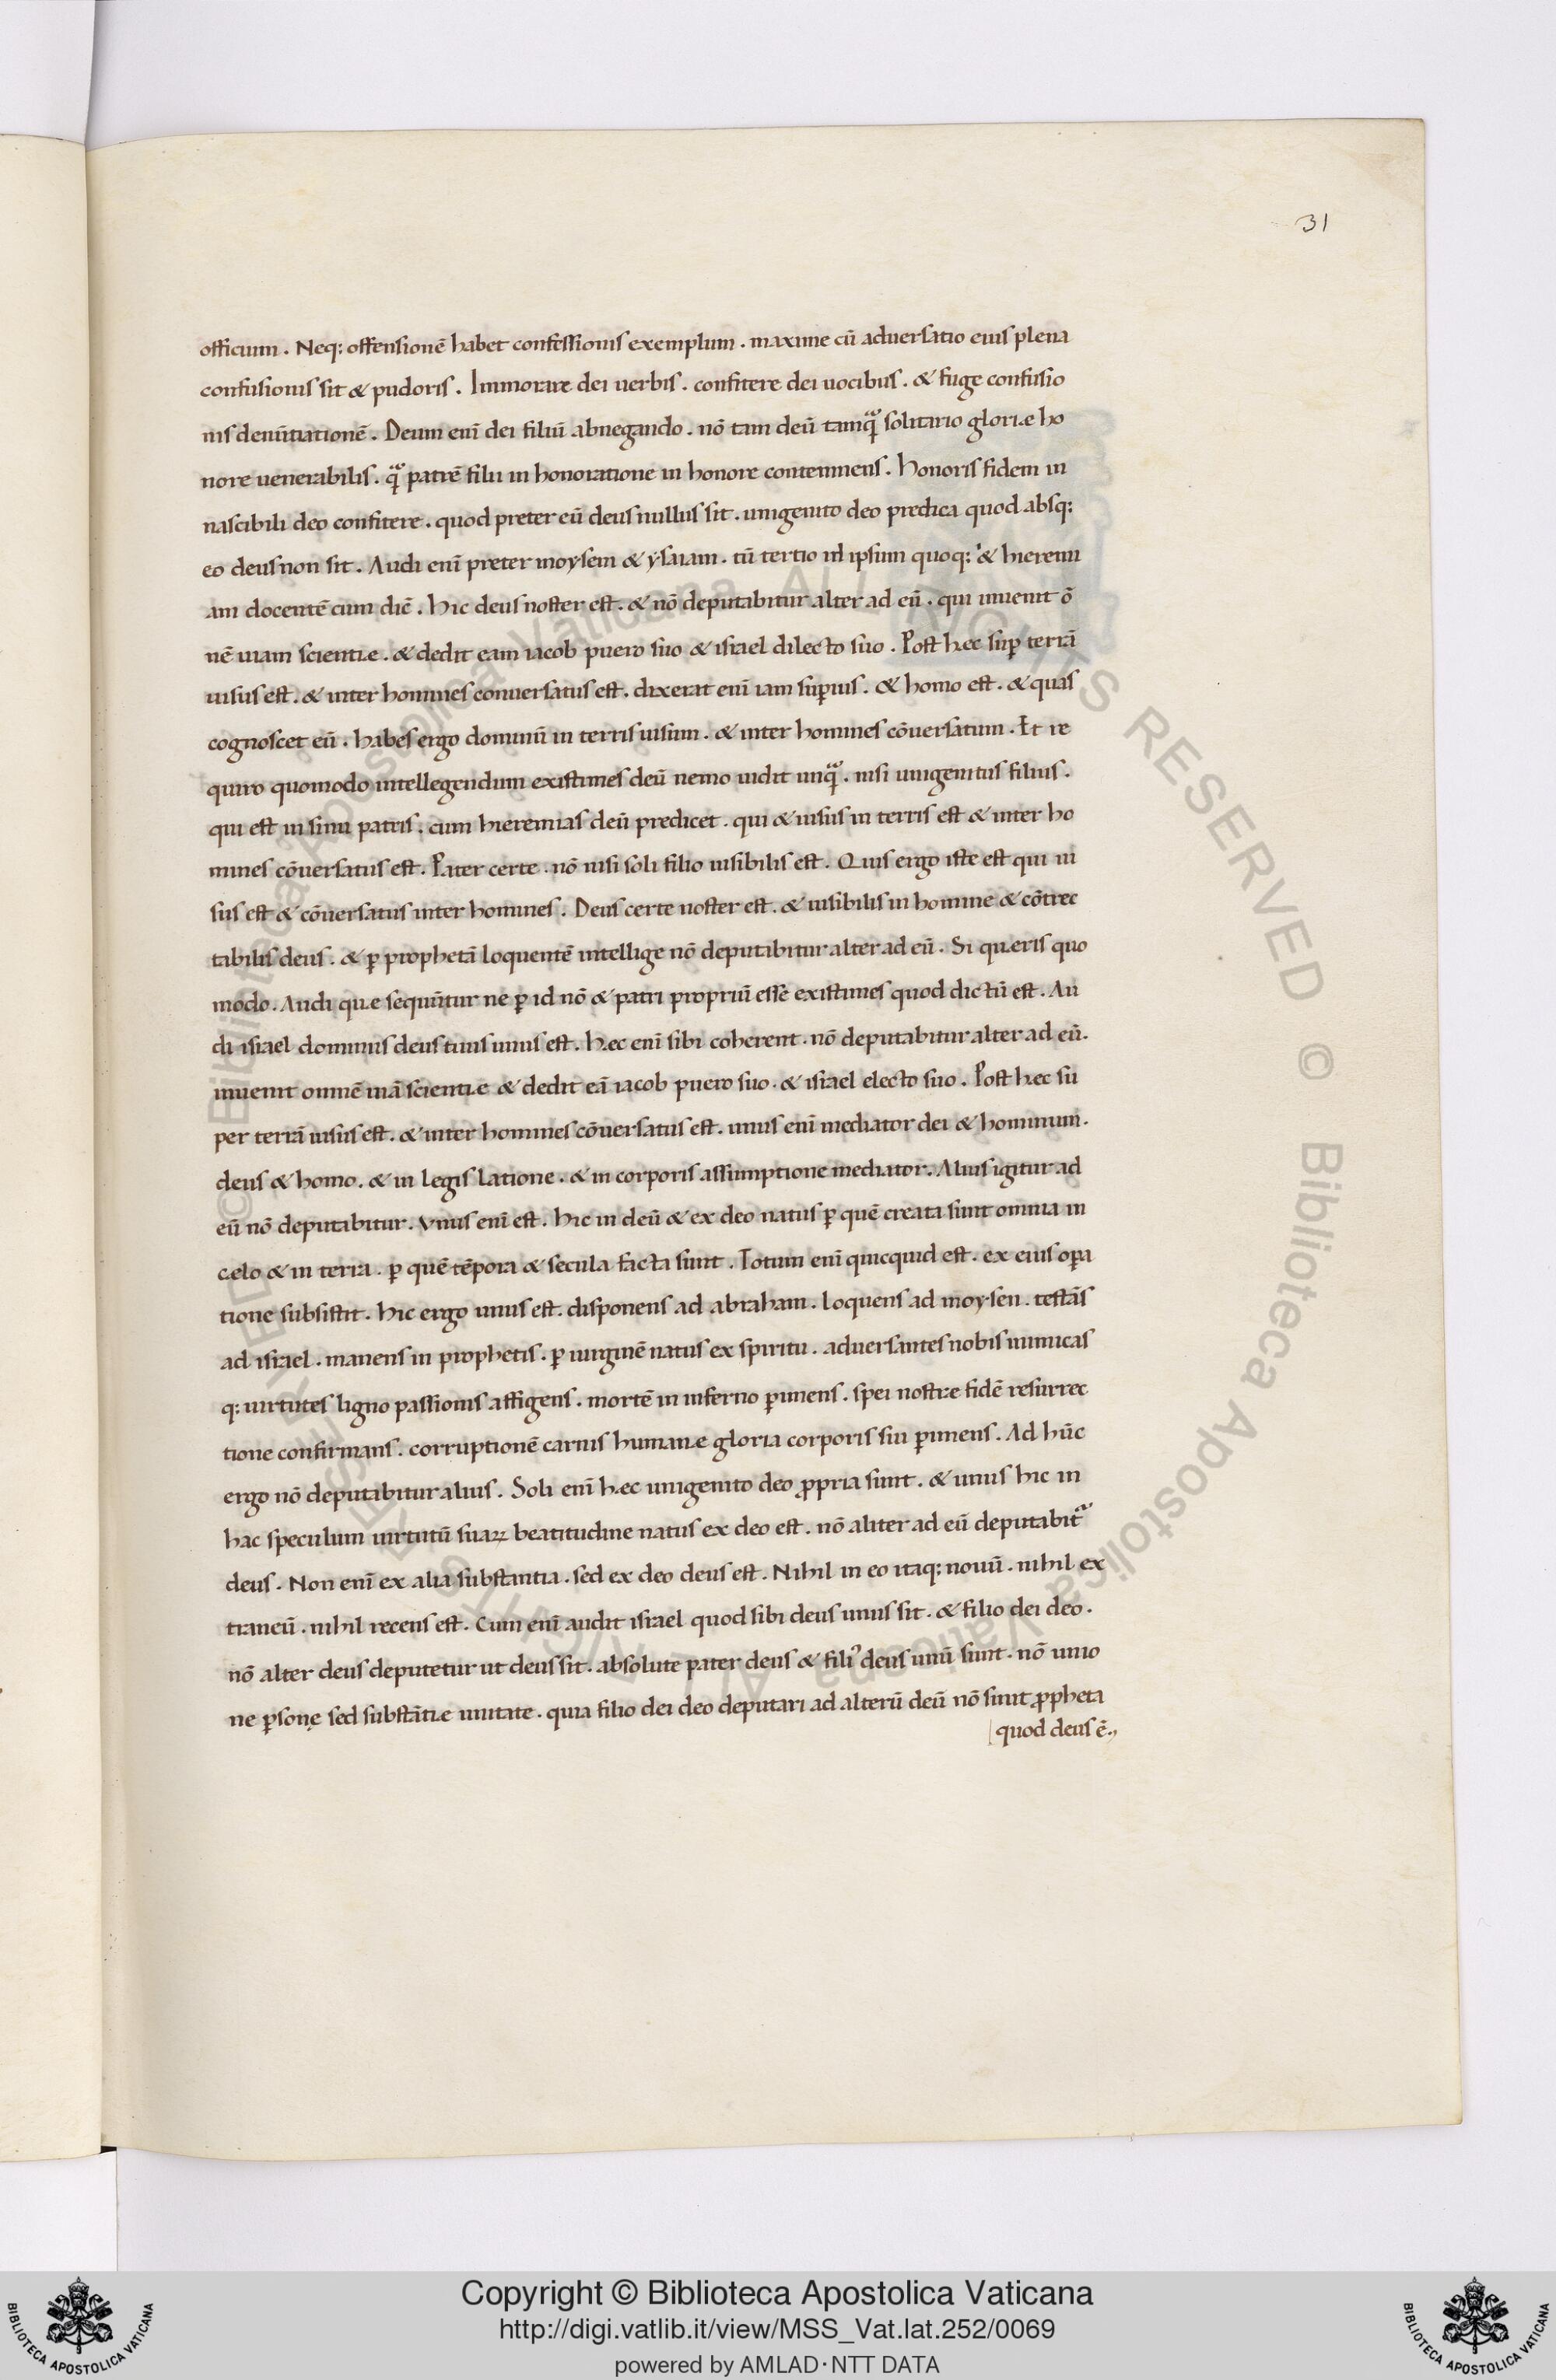 31
officium . Neq: offensionē habet confessionis exemplum . maxime cū aduersatio eius plena
confusionis sit & pudoris . Immorare dei uerbis . confitere dei uocibus . & fuge confusio
nis denūtiationē . Deum enī dei filiū abnegando . nō tam deū tamqͣ solitario gloriae ho
nore uenerabilis . qͣ patrē filii in honoratione in honore contemnens . Honoris fidem in
nascibili deo confitere . quod preter eū deus nullus sit . unigenito deo predica quod absq:
eo deus non sit . Audi enī preter moysem & ysaiam . tū tertio in ipsum quoq: & hieremi
am docentē cum dic̄ . Hic deus noster est . & nō deputabitur alter ad eū . qui inuenit ō
nē uiam scientiae . & dedit eam iacob puero suo & israel dilecto suo . Post haec suꝑ terrā
uisus est . & inter homines conuersatus est . dixerat enī iam suꝑius . & homo est . & quas
cognoscet eū . habes ergo dominū in terris uisum . & inter homines cōuersatum . Et re
quiro quomodo intellegendum existimes deū nemo uidit unqͣ . nisi unigenitus filius .
qui est in sinu patris . cum hieremias deū predicet . qui & uisus in terris est & inter ho
mines cōuersatus est . Pater certe . nō nisi soli filio uisibilis est . Quis ergo iste est qui ui
sus est & cōuersatus inter homines . Deus certe noster est . & uisibilis in homine & cōtrec
tabilis deus . & ꝑ prophetā loquentē intellige nō deputabitur alter ad eū . Si quaeris quo
modo . Audi quae sequūtur ne ꝑ id nō & patri propriū esse existimes quod dictū est . Au
di israel dominus deus tuus unus est . haec enī sibi coherent . nō deputabitur alter ad eū .
inuenit omnē uiā scientiae & dedit eā iacob puero suo . & israel electo suo . Post haec su
per terrā uisus est . & inter homines cōuersatus est . unus enī mediator dei & hominum .
deus & homo . & in legis latione . & in corporis assumptione mediator . Alius igitur ad
eū nō deputabitur . Vnus enī est . hic in deū & ex deo natus ꝑ quē creata sunt omnia in
caelo & in terra . ꝑ quē tēpora & secula facta sunt . Totum enī quicquid est . ex eius oꝑa
tione subsistit . hic ergo unus est . disponens ad abraham . loquens ad moysen . testās
ad israel . manens in prophetis . ꝑ uirginē natus ex spiritu . aduersantes nobis inimicas
q: uirtutes ligno passionis affigens . mortē in inferno ꝑimens . spei nostrae fidē resurrec
tione confirmans . corruptionē carnis humanae gloria corporis sui ꝑimens . Ad hūc
ergo nō deputabitur alius . Soli enī haec unigenito deo ꝓpria sunt . & unus hic in
hac speculum uirtutū suaꝝ beatitudine natus ex deo est . nō aliter ad eū deputabit᷑
deus . Non enī ex alia substantia . sed ex deo deus est . Nihil in eo itaq: nouū . nihil ex
traneū . nihil recens est . Cum enī audit israel quod sibi deus unus sit . & filio dei deo .
nō alter deus deputetur ut deus sit . absolute pater deus & fili᾽ deus unū sunt . nō unio
ne ꝑsonę sed substātiae unitate . quia filio dei deo deputari ad alterū deū nō sinit ꝓpheta
quod deus ē.,
© Biblioteca Apostolica Vaticana ALL RIGHTS RESERVED © Biblioteca Apostolica Vaticana ALL RIGHTS RESERVED
Copyright © Biblioteca Apostolica Vaticana
http://digi.vatlib.it/view/MSS_Vat.lat.252/0069
powered by AMLAD·NTT DATA
BIBLIOTECA APOSTOLICA VATICANA
BIBLIOTECA APOSTOLICA VATICANA